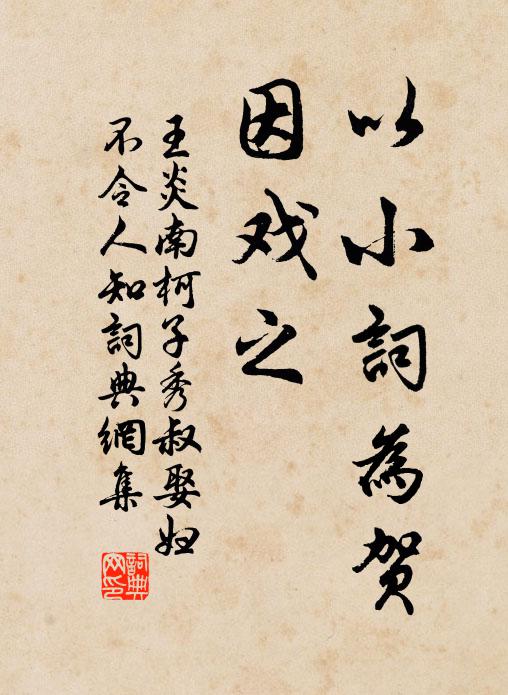 以小詞為贺
因戏之
王炎南柯子秀叔娶妇
不令人知詞典網集
詞典
网印